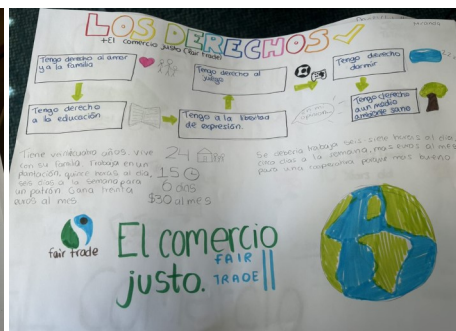 LOS DERECHOS
+El comercio justo (fair trade)
Tengo derecho al amor
y a la familia
Tengo derecho al
juego
Tengo derecho
dormir
Tengo derecho
a la educación
Tengo a la libertad
de expresión.
Tengo derecho
a un medio
ambiente sano
Tiene veinticuatro años, vive
con su familia. Trabaja en un
plantación, quince horas al día,
seis días a la semana para
un patrón. Gana treinta
euros al mes.
24
15
6 días
$30 al mes
Se debería trabaja seis-siete horas al día,
cinco días a la semana, mas euros al mes
para una cooperativa porque mas bueno
fair trade
El comercio
justo.
FAIR
TRADE